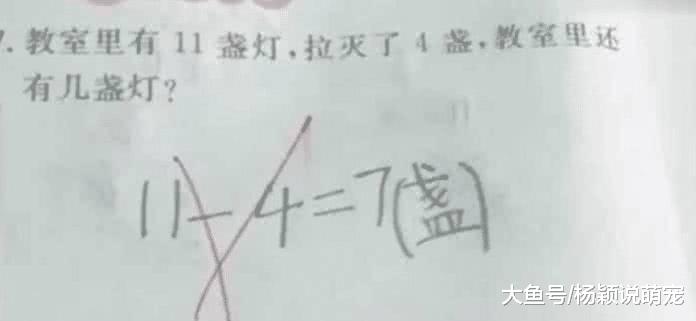 7. 教室里有 11 盏灯,拉灭了 4 盏,教室里还
有几盏灯?
11-4=7(盏)
大鱼号/杨颖说萌宠